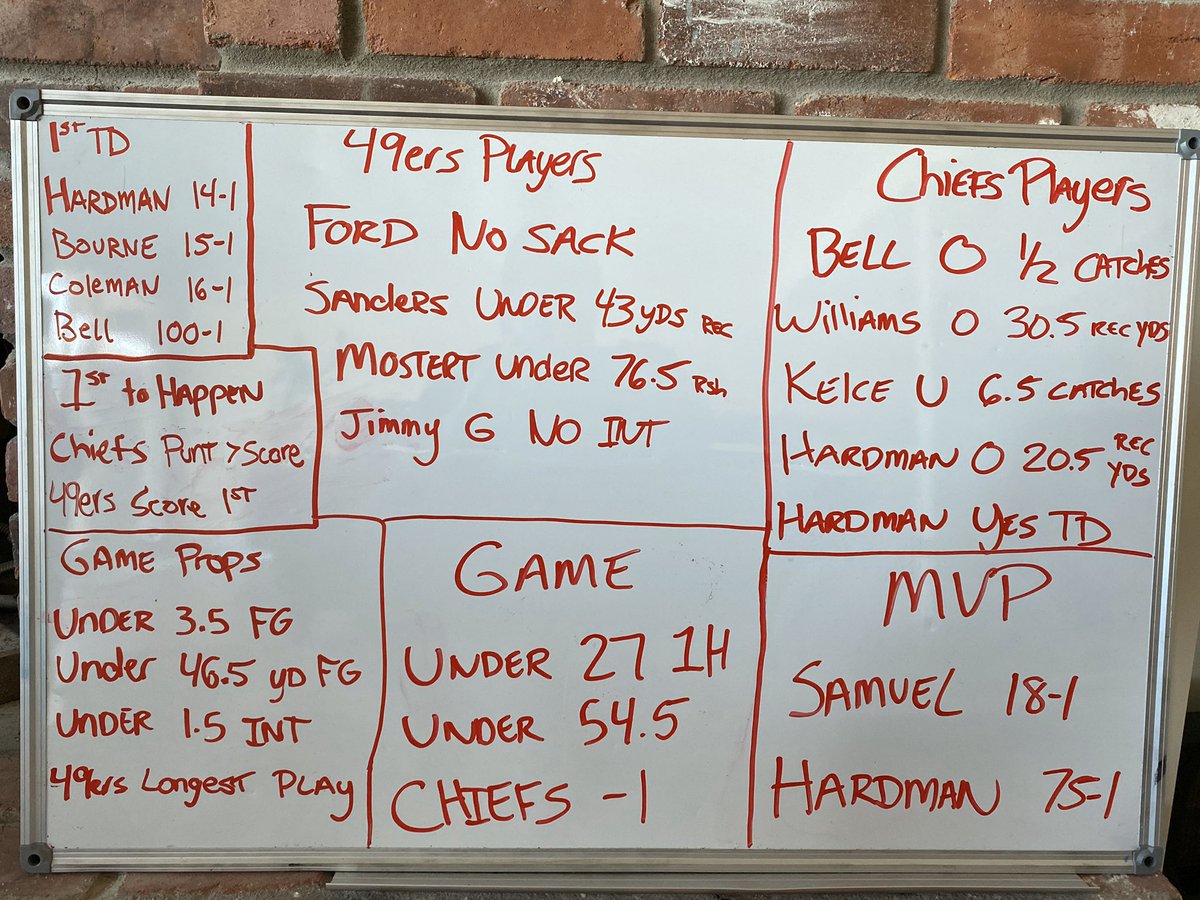 1ST TD
HARDMAN 14-1
BOURNE 15-1
Coleman 16-1
Bell 100-1
1ST to HAPPEN
Chiefs Punt > Score
49ers Score 1ST
GAME Props
UNDER 3.5 FG
Under 46.5 yD FG
UNDER 1.5 INT
49ers Longest PLAY
49ers Players
FORD NO SACK
Sanders UNDER 43 YDS REC
MOSTERT under 76.5 Rsh
Jimmy G NO INT
GAME
UNDER 27 1H
UNDER 54.5
CHIEFS -1
CHIEFS Players
BELL O 1/2 CATCHES
Williams O 30.5 REC YDS
KELCE U 6.5 CATCHES
HARDMAN O 20.5 REC YDS
HARDMAN YES TD
MVP
SAMUEL 18-1
HARDMAN 75-1